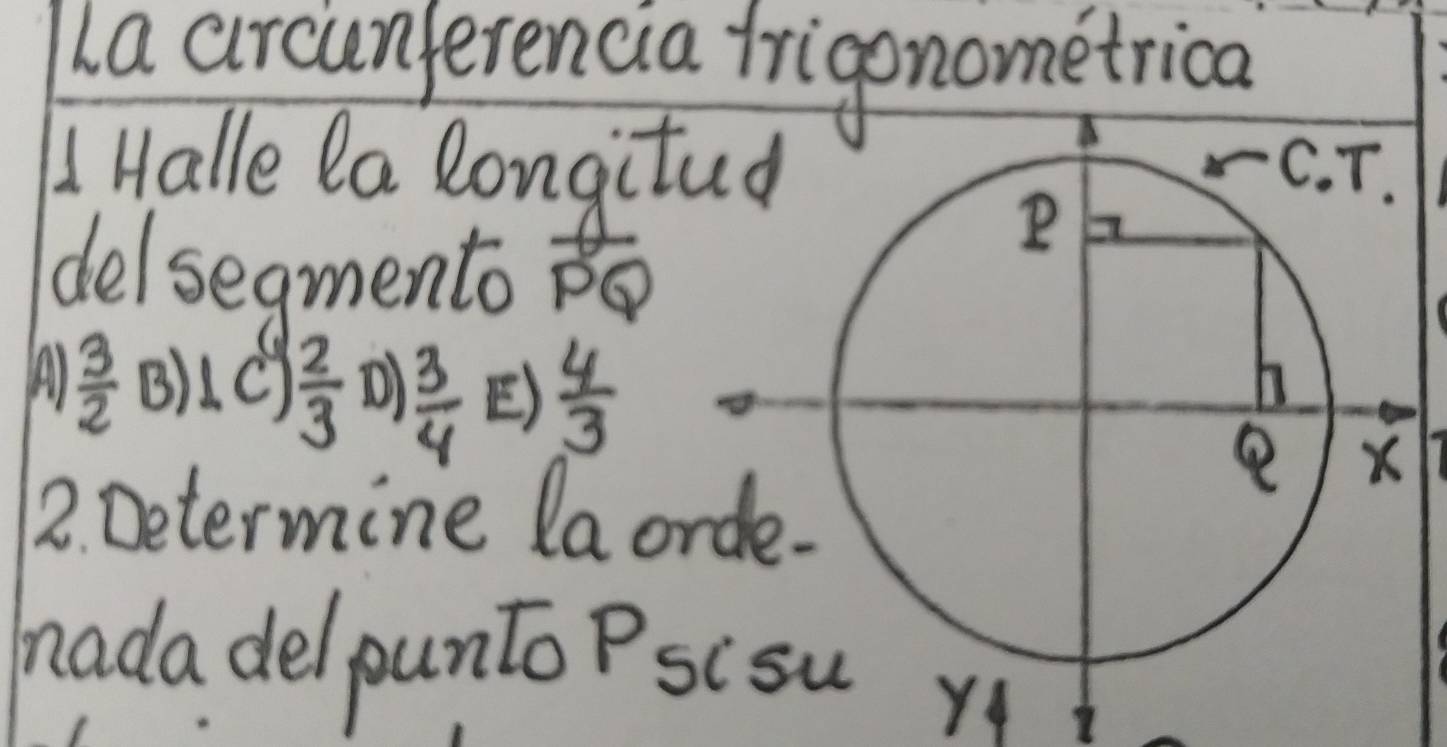 La circunferencia trigonométrica
1 Halle la longitud
del segmento PQ
A) 3/2 B) 1 C) 2/3 D) 3/4 E) 4/3
2. Determine la orde-
nada del punto P si su
C.T.
P
Q
X
Y